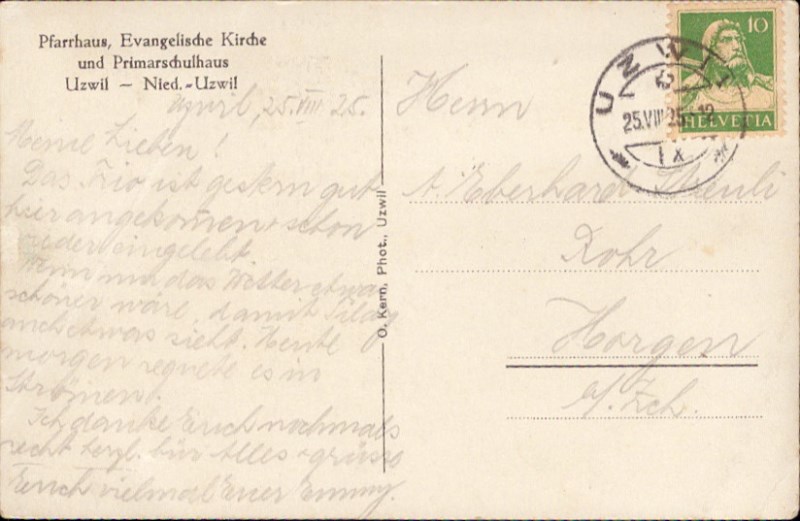 Pfarrhaus, Evangelische Kirche
und Primarschulhaus
Uzwil – Nied.-Uzwil
Uzwil, 25. VIII 25.
Meine Lieben!
Das Trio ist gestern gut
heim angekommen + schon
wieder eingelebt.
Wenn nur das Wetter etwas
schöner wäre, damit
auch etwas sieht. Heute
morgen regnete es in
Strömen.
Ich danke Euch nochmals
recht herzl. für Alles + grüsse
Euch vielmal Euer Emmy.
O. Kern, Phot., Uzwil
Herrn
A. Eberhard
Rohr
Horgen
a/Zch.
10
HELVETIA
UZWIL
25.VIII.25 - 12